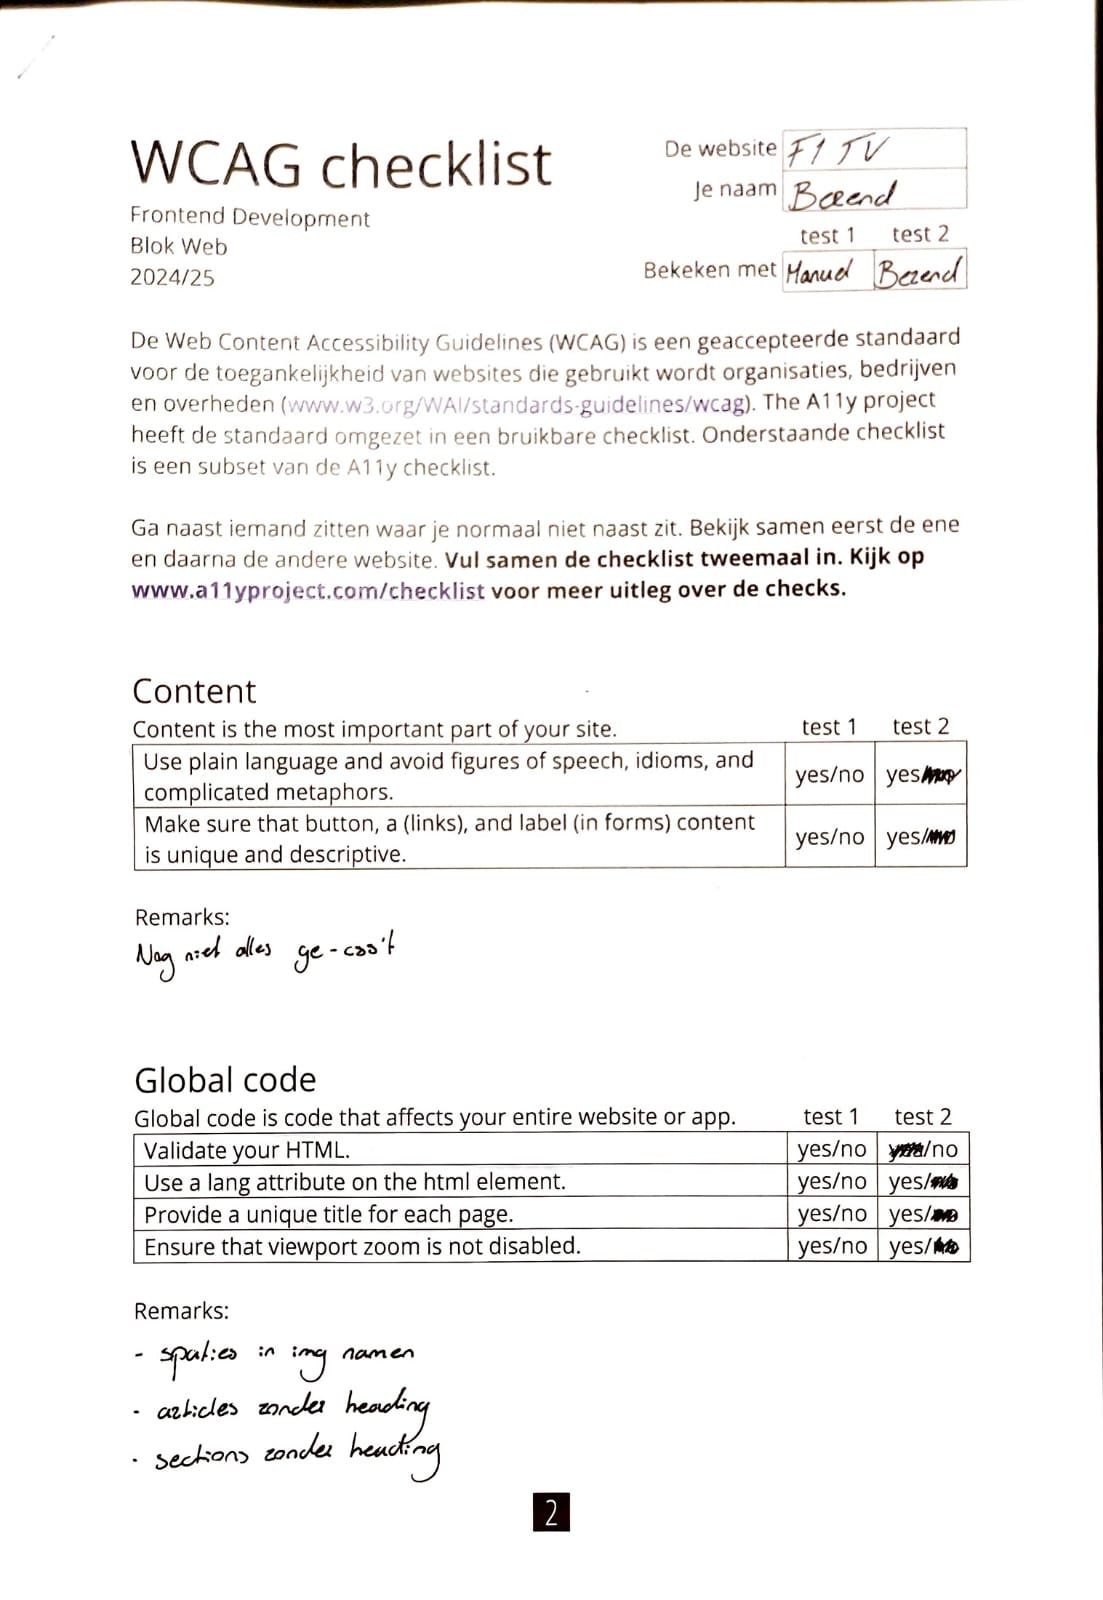 WCAG checklist
Frontend Development
Blok Web
2024/25
De website F1 TV
Je naam Berend
test 1 test 2
Bekeken met Manuel Berend
De Web Content Accessibility Guidelines (WCAG) is een geaccepteerde standaard
voor de toegankelijkheid van websites die gebruikt wordt organisaties, bedrijven
en overheden (www.w3.org/WAI/standards-guidelines/wcag). The A11y project
heeft de standaard omgezet in een bruikbare checklist. Onderstaande checklist
is een subset van de A11y checklist.
Ga naast iemand zitten waar je normaal niet naast zit. Bekijk samen eerst de ene
en daarna de andere website. Vul samen de checklist tweemaal in. Kijk op
www.a11yproject.com/checklist voor meer uitleg over de checks.
Content
Content is the most important part of your site. test 1 test 2
Use plain language and avoid figures of speech, idioms, and
complicated metaphors. yes/no yes/
Make sure that button, a (links), and label (in forms) content
is unique and descriptive. yes/no yes/
Remarks:
Nog niet alles ge-css't
Global code
Global code is code that affects your entire website or app. test 1 test 2
Validate your HTML. yes/no /no
Use a lang attribute on the html element. yes/no yes/
Provide a unique title for each page. yes/no yes/
Ensure that viewport zoom is not disabled. yes/no yes/
Remarks:
- spaties in img namen
- articles zonder heading
- sections zonder heading
2